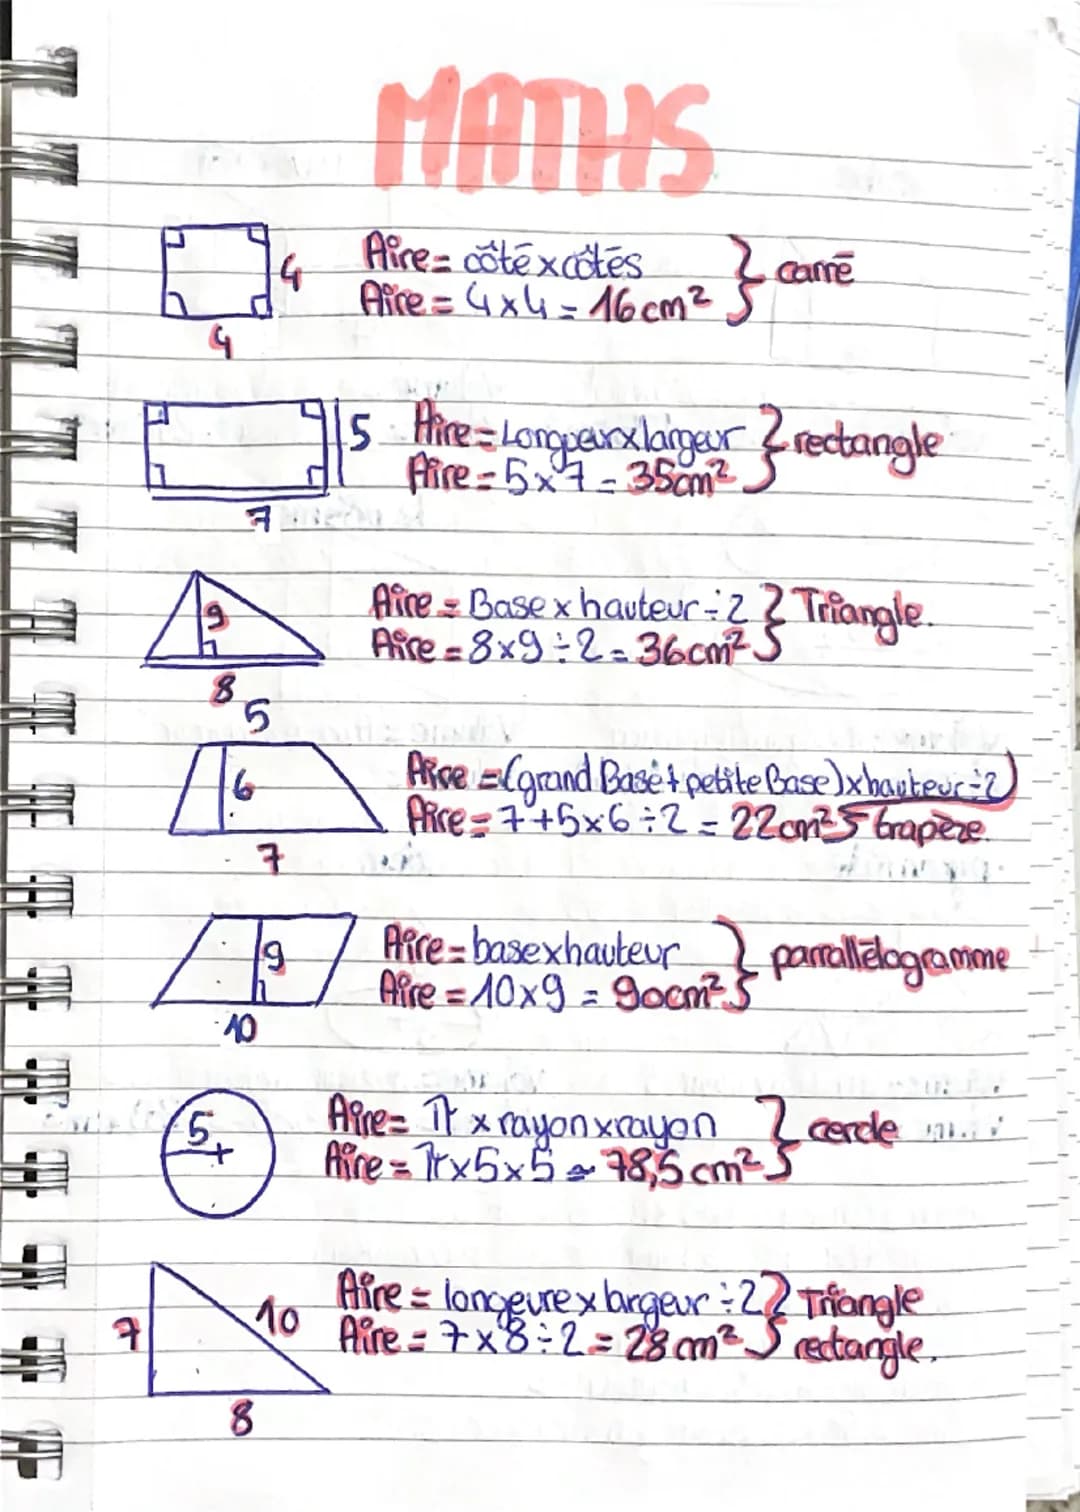 MATHS
4
4
Aire = côté x côtés
Aire = 4 x 4 = 16 cm²
} carré
5
7
Aire = Longueur x largeur
Aire = 5 x 7 = 35cm²
} rectangle
9
8
Aire = Base x hauteur ÷ 2
Aire = 8x9 ÷ 2 = 36cm²
} Triangle.
5
6
7
Aire = (grand Base + petite Base) x hauteur ÷ 2
Aire = 7+5x6 ÷ 2 = 22cm²
trapèze.
9
10
Aire = base x hauteur
Aire = 10 x 9 = 90cm²
} parrallélogramme
5
Aire = π x rayon x rayon
Aire = π x 5 x 5 ≃ 78,5 cm²
} cercle
7
10
8
Aire = longeure x largeur ÷ 2
Aire = 7 x 8 ÷ 2 = 28 cm²
} Triangle
rectangle.